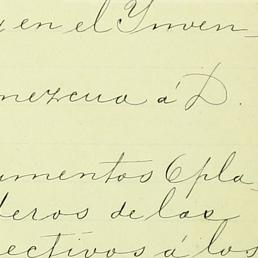 y en el Ynven-
mezcua á D.
umentos 6 pla-
deros de las
ectivos á los